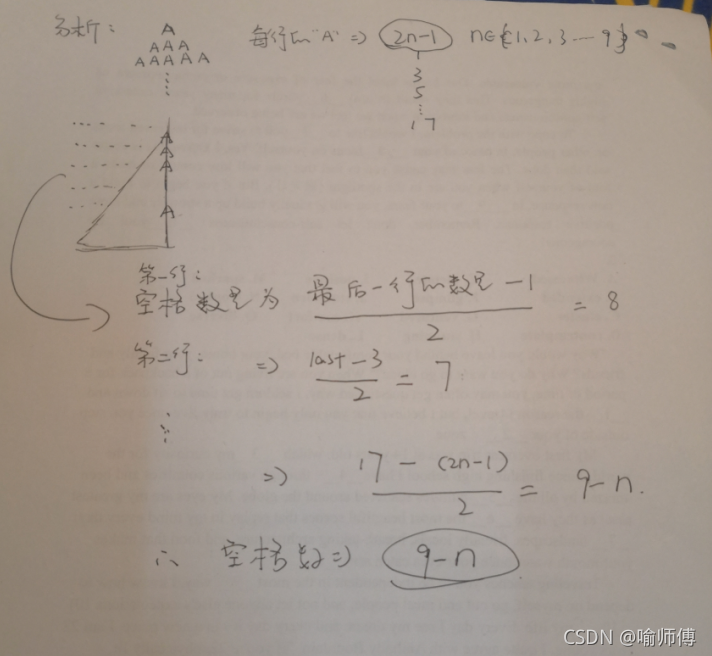 分析:
A
AAA
AAAAA
每行的"A" => 2n-1 n∈{1,2,3…9}
3
5
17
A
A
A
A
第一行:
空格数量为 最后一行的数量-1 / 2 = 8
第二行: => last-3 / 2 = 7
=> 17-(2n-1) / 2 = 9-n.
∴ 空格数=> 9-n
CSDN @喻师傅